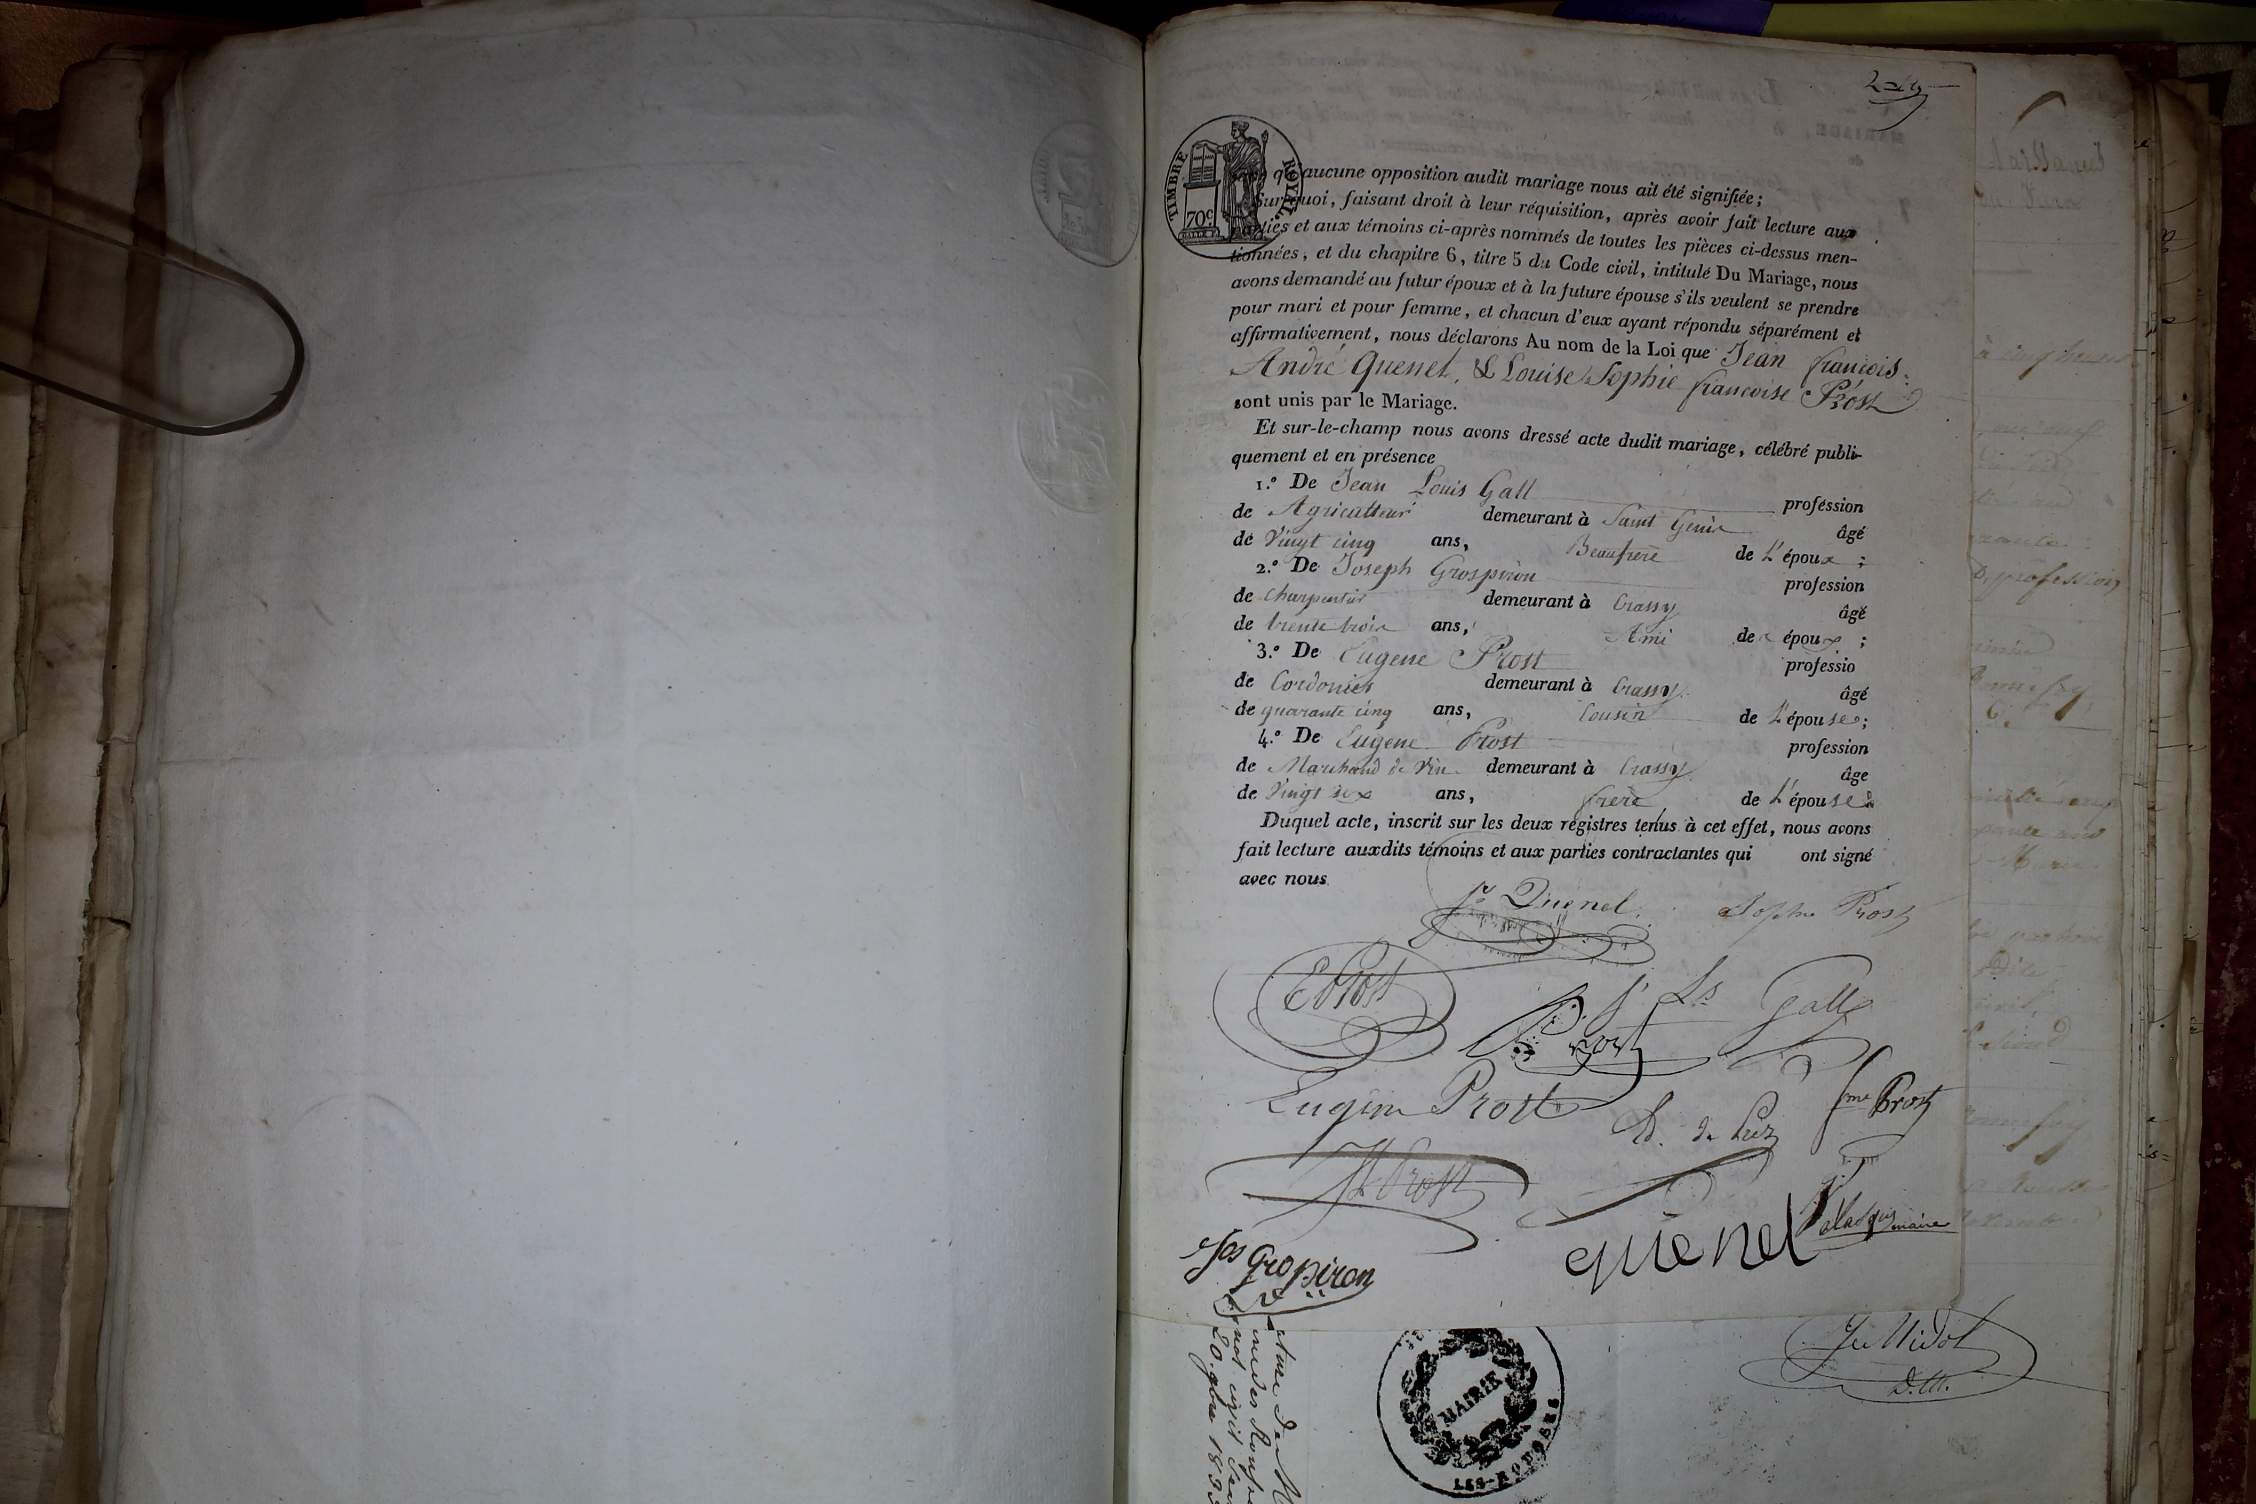 TIMBRE ROYAL
70c.
aucune opposition audit mariage nous ait été signifiée;
Sur quoi, faisant droit à leur réquisition, après avoir fait lecture aux
parties et aux témoins ci-après nommés de toutes les pièces ci-dessus men-
tionnées, et du chapitre 6, titre 5 du Code civil, intitulé Du Mariage, nous
avons demandé au futur époux et à la future épouse s'ils veulent se prendre
pour mari et pour femme, et chacun d'eux ayant répondu séparément et
affirmativement, nous déclarons Au nom de la Loi que Jean françois
André Quenet, & Louise Sophie françoise Prost
sont unis par le Mariage.
Et sur-le-champ nous avons dressé acte dudit mariage, célébré publi-
quement et en présence
1.º De Jean Louis Gall profession
de Agriculteur demeurant à Saint Genix âgé
de Vingt cinq ans, Beaufrere de L'époux ;
2.º De Joseph Grospiron profession
de charpentier demeurant à Crassy âgé
de trente trois ans, Ami de époux ;
3.º De Eugene Prost professio
de Cordonier demeurant à Crassy âgé
de quarante cinq ans, Cousin de L'épouse;
4.º De Eugene Prost profession
de Marchand de Vin demeurant à Crassy âge
de Vingt six ans, frere de L'épouse
Duquel acte, inscrit sur les deux registres tenus à cet effet, nous avons
fait lecture auxdits témoins et aux parties contractantes qui ont signé
avec nous
Quenet Sophie Prost
E Prost
Ls Gall
Prost
Eugene Prost
fme Prost
Prost
maire
quenet
Jos Gropiron
MAIRIE
LES-ROUSSES